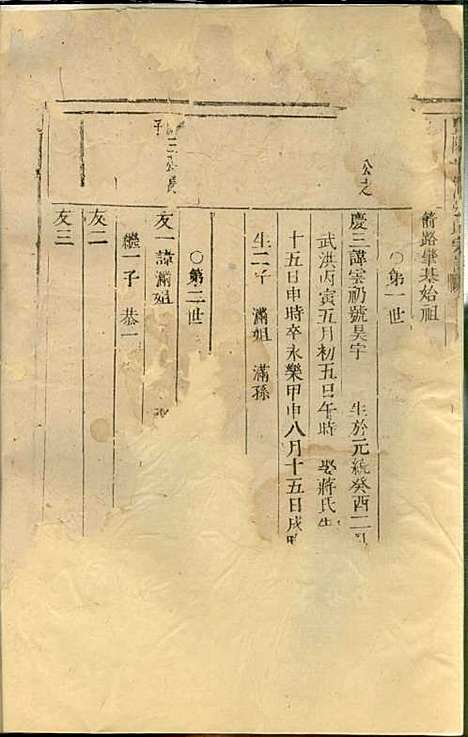 箭路肇基始祖
○第一世
公之
慶三諱雲礽號昊宇 生於元統癸酉二月
武洪丙寅五月初五日午時 娶蔣氏生
十五日申時卒永樂甲申八月十五日戌時
生二子 滿姐 滿孫
○第二世
三公長子
友一諱滿姐
繼一子 恭一
友二
友三